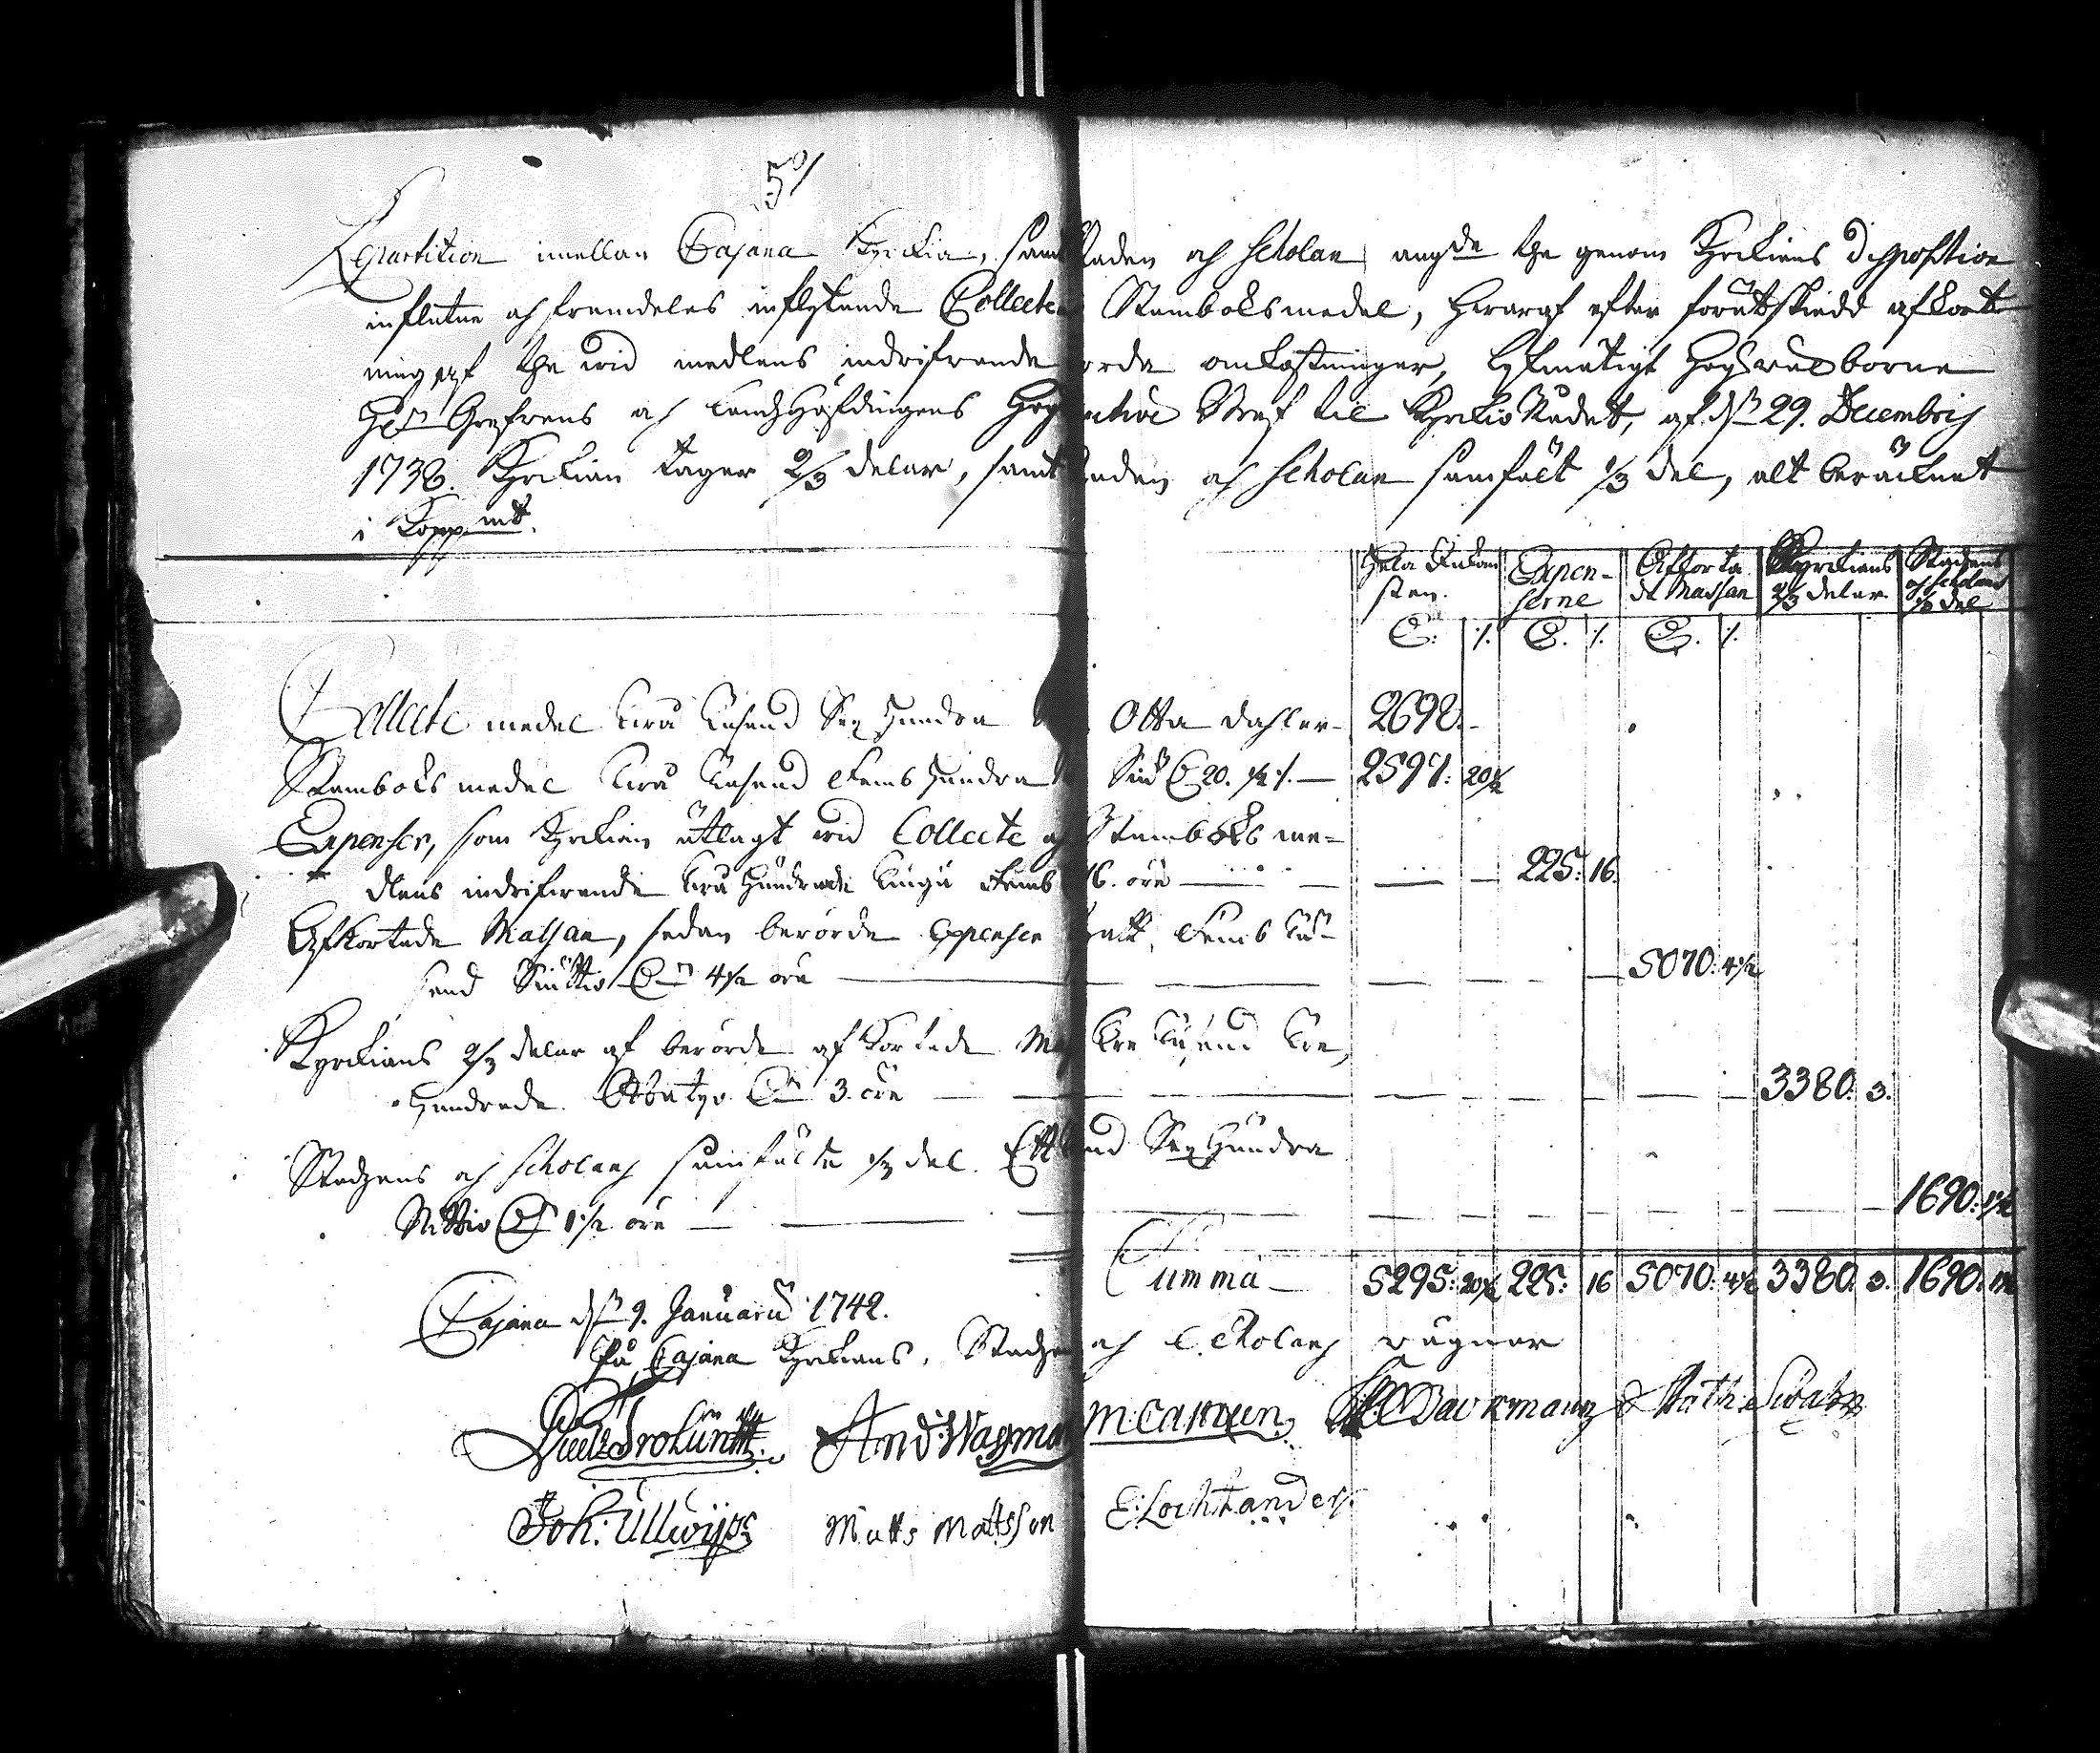 5%
Repartition imellan Cajana Kyrckia, samt Staden och Scholan angde the genom Kyrckians disposition
influtne och framdeles inflytande Collecte Stamboksmedel, hwaraf efter forutskiedd afkort
ning af the wid medlens indrifwande giorde omkåstningar, lyckmätigt Högwälborne
Hr Grefwens och Landzhöfdingens Höggunstige Bref til KyrckioRådet, af dn 29. Decembris
1738. Kyrckian tager 2/3 delar, samt Staden och Scholan samfält 1/3 del, alt beräcknat
i Kopp.mt.
Hela Inkom sten. Expen- serne Afkorta de Massan Kyrckians 2/3 delar Stadens och Scholans 1/3 del
Collecte medel twa tusend Sex Hundra Otta Dahler 2698.
Stamboks medel twå tusend Femb Hundra Siu 20. 1/2 2597: 20 1/2
Expenser, som Kyrckian utlagt wid Collecte och Stamboks me-
dlens indrifwande twå Hundrade tiugu Femb 16. öre 225: 16.
Afkortade Massan, sedan berörde Expenser Femb tu-
send Siuttio 4 1/2 öre 5070: 4 1/2
Kyrckians 2/3 delar af berörde afkortade Ma Tre tusend Tre
Hundrade Ottatyo 3. öre 3380: 3.
Stadzens och Scholans samfälte 1/3 del. Ett Sex Hundra
Nittio 1 1/2 öre 1690: 1 1/2
Summa 5295: 20 1/2 225: 16 5070: 4 1/2 3380: 3. 1690: 1 1/2
Cajana dn 9. Januarii 1742.
På Cajana Kyrckians, Stadzens och Scholans wägnar
And: Wagman M: Castren
Joh: Ullwijk Matts Mattsson E: Lochtander